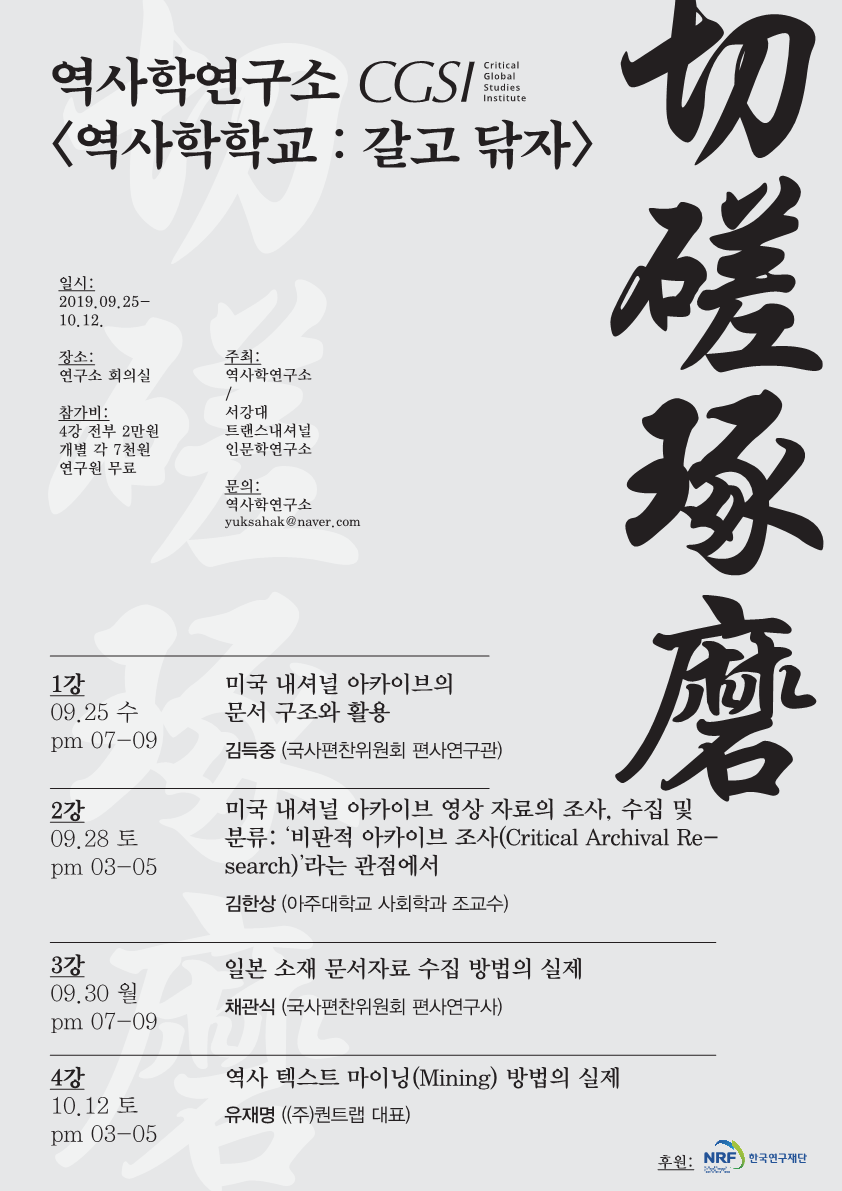 역사학연구소 CGSI Critical Global Studies Institute
<역사학학교 : 갈고 닦자>
切
磋
琢
磨
일시:
2019.09.25-
10.12.
장소:
연구소 회의실
참가비:
4강 전부 2만원
개별 각 7천원
연구원 무료
주최:
역사학연구소
/
서강대
트랜스내셔널
인문학연구소
문의:
역사학연구소
yuksahak@naver.com
1강
09.25 수
pm 07-09
미국 내셔널 아카이브의
문서 구조와 활용
김득중 (국사편찬위원회 편사연구관)
2강
09.28 토
pm 03-05
미국 내셔널 아카이브 영상 자료의 조사, 수집 및
분류: ‘비판적 아카이브 조사(Critical Archival Re-
search)’라는 관점에서
김한상 (아주대학교 사회학과 조교수)
3강
09.30 월
pm 07-09
일본 소재 문서자료 수집 방법의 실제
채관식 (국사편찬위원회 편사연구사)
4강
10.12 토
pm 03-05
역사 텍스트 마이닝(Mining) 방법의 실제
유재명 ((주)퀀트랩 대표)
후원: NRF 한국연구재단